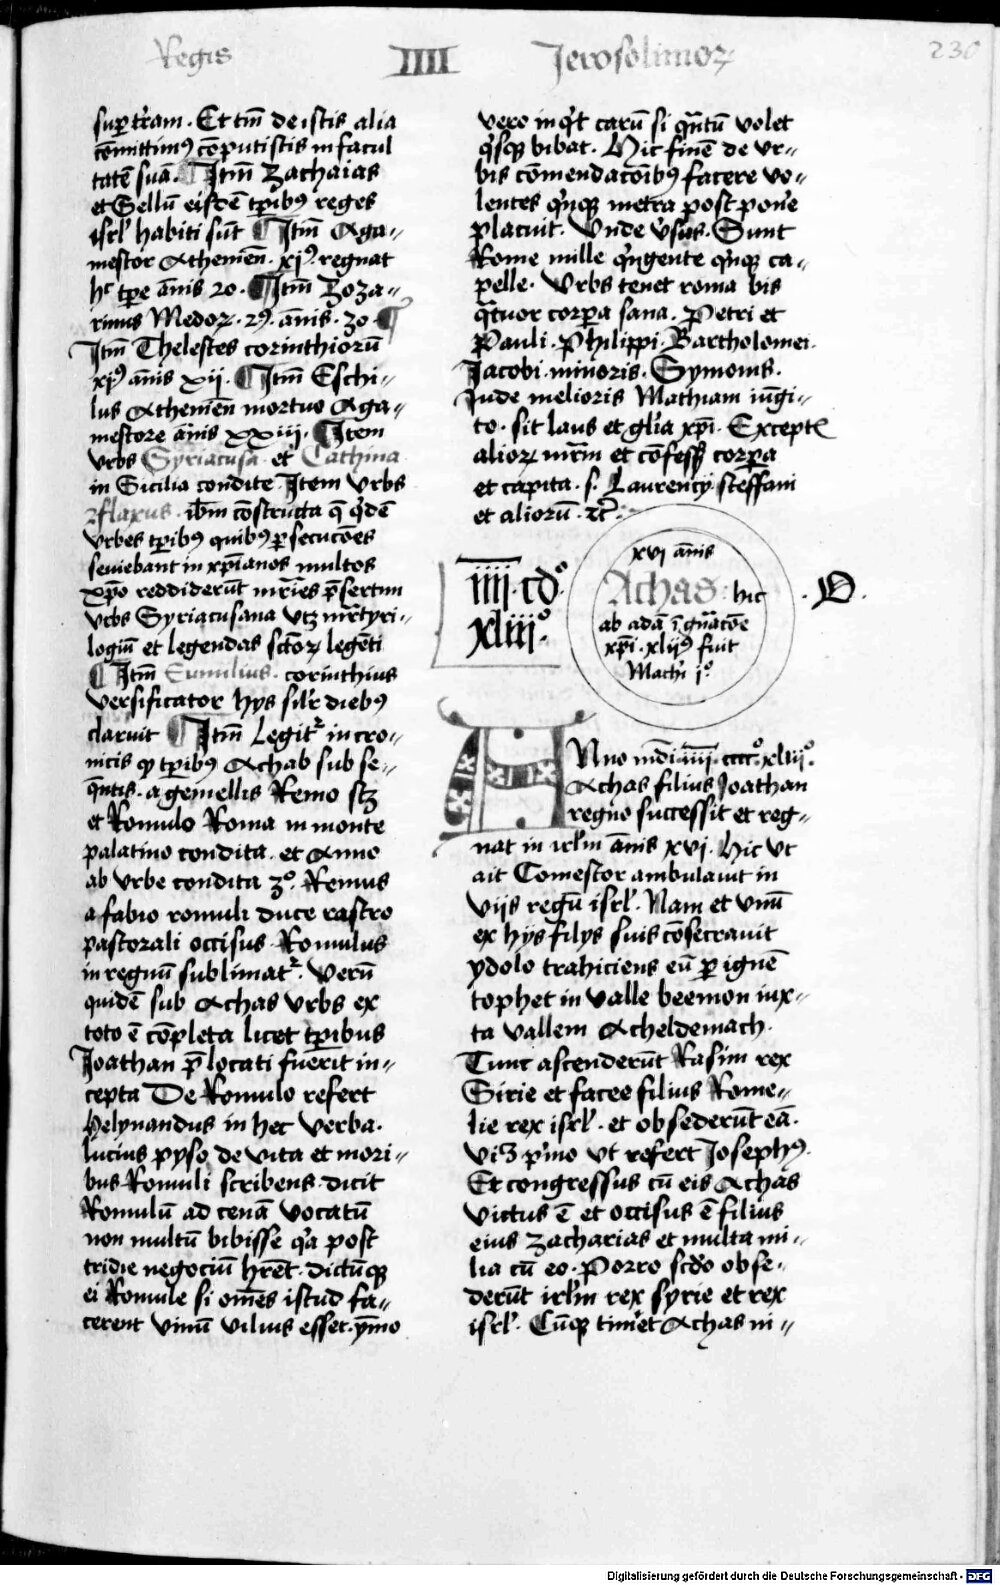 Regis IIII Jerosolimoꝝ 230
suꝑ tr̄am · Et tm̄ de istis alia
cōmittimꝰ cōputistis in facul
tatē suā · ¶ Itm̄ Zachaias
et Sellū eisdē tꝑibꝰ reges
isrl' habiti sūt ¶ Itm̄ Aga〃
mestor Athenien̄ · xjꝰ · regnat
hͨ tꝑe ānis 20 · ¶ Itm̄ Zoza〃
rimus Medoꝝ · 2ꝰ · ānis · 30 · ¶
Itm̄ Thelestes corinthiorū
xjꝰ ānis xij · ¶ Itm̄ Eschi〃
lus Atheniēn mortuo Aga〃
mestore ānis xxiij · ¶ Item
vrbs Syriacusa · et Cathina
in Sicilia condite · Item vrbs
flaxus · ibm̄ cōstructa q̄ qͥdē
vrbes tꝑibꝰ quibꝰ ꝑsecucōes
seviebant in xp̄ianos multos
xp̄o reddiderūt mr̄ies p̄sertim
vrbs Syriacusana vtꝫ mr̄tyri〃
logiū et legendas sctoꝝ legēti
¶ Itm̄ Eumilius · corinthius
versificator hys silr' diebꝰ
claruit ¶ Itm̄ Legitᷣ in cro〃
nicis qꝫ tꝑibꝰ Achab sub se〃
q̄ntis · a gemellis Remo scꝫ
et Romulo Roma in monte
palatino condita · et Anno
ab vrbe condita 3º · Remus
a fabio romuli duce rastro
pastorali occisus · Romulus
in regnū sublimatᷣ · Verū
quidē sub Achas vrbs ex
toto ē cōpleta licet tꝑibus
Joathan p̄locati fuerīt in〃
cepta De Romulo refert
Helynandus in hec verba ·
lucius pyso de vita et mori〃
bus Romuli scribens · dicit
Romulū ad cenā vocatū
non multū bibisse qͣ post
tridie negociū hr̄et · dictūqꝫ
ei Romule si om̄es istud fa〃
cerent vinū vilius esset · ymo
vero inqͥt carū si qͣntū volet
qͥsqꝫ bibat · Hic finē de vr〃
bis cōmendacōibꝰ facere vo〃
lentes qͥnqꝫ metra postpon'e
placuit · Vnde v'sus · Sunt
Rome mille qͥngente qͥnqꝫ ca〃
pelle · Vrbs tenet roma bis
qͣtuor corꝑa sana · Petri et
Pauli · Philippi · Bartholomei ·
Jacobi · minoris · Symonis ·
Jude melioris Mathiam iūgi〃
to · sit laus et glīa xp̄i · Except
alioꝝ mr̄m et cōfessꝝ corꝑa
et capita · s · Laurencÿ steffani
et aliorū · ⁊cͣ
xvj ānis
Achas · hic
ab adā ī gn̄atōe
xp̄i · xlijꝰ fuit
Mach'i jº
iiij · cdº
xliijº ·
Anno mūdi iiij · ccccº · xliijº ·
Achas filius Joathan
regno successit et reg〃
nat in irl'm ānis xvj · Hic vt
ait Comestor ambulavit in
viis regū isrl' · Nam et vnū
ex hys filys suis cōsecravit
ydolo trahiciens eū ꝑ ignē
tophet in valle beemon iux〃
ta vallem Acheldemach ·
Tunc ascenderūt Rasim rex
Sirie et facee filius Rome〃
lie rex isrl' · et obsederūt eā ·
viꝫ pͥmo vt refert Josephꝰ ·
Et congressus cū eis Achas
victus ē et occisus ē filius
eius Zacharias et multa mi〃
lia cū eo · Porro scd'o obse〃
derūt irl'm rex syrie et rex
isrl' · Cūqꝫ timēt Achas ni〃
Digitalisierung gefördert durch die Deutsche Forschungsgemeinschaft - DFG